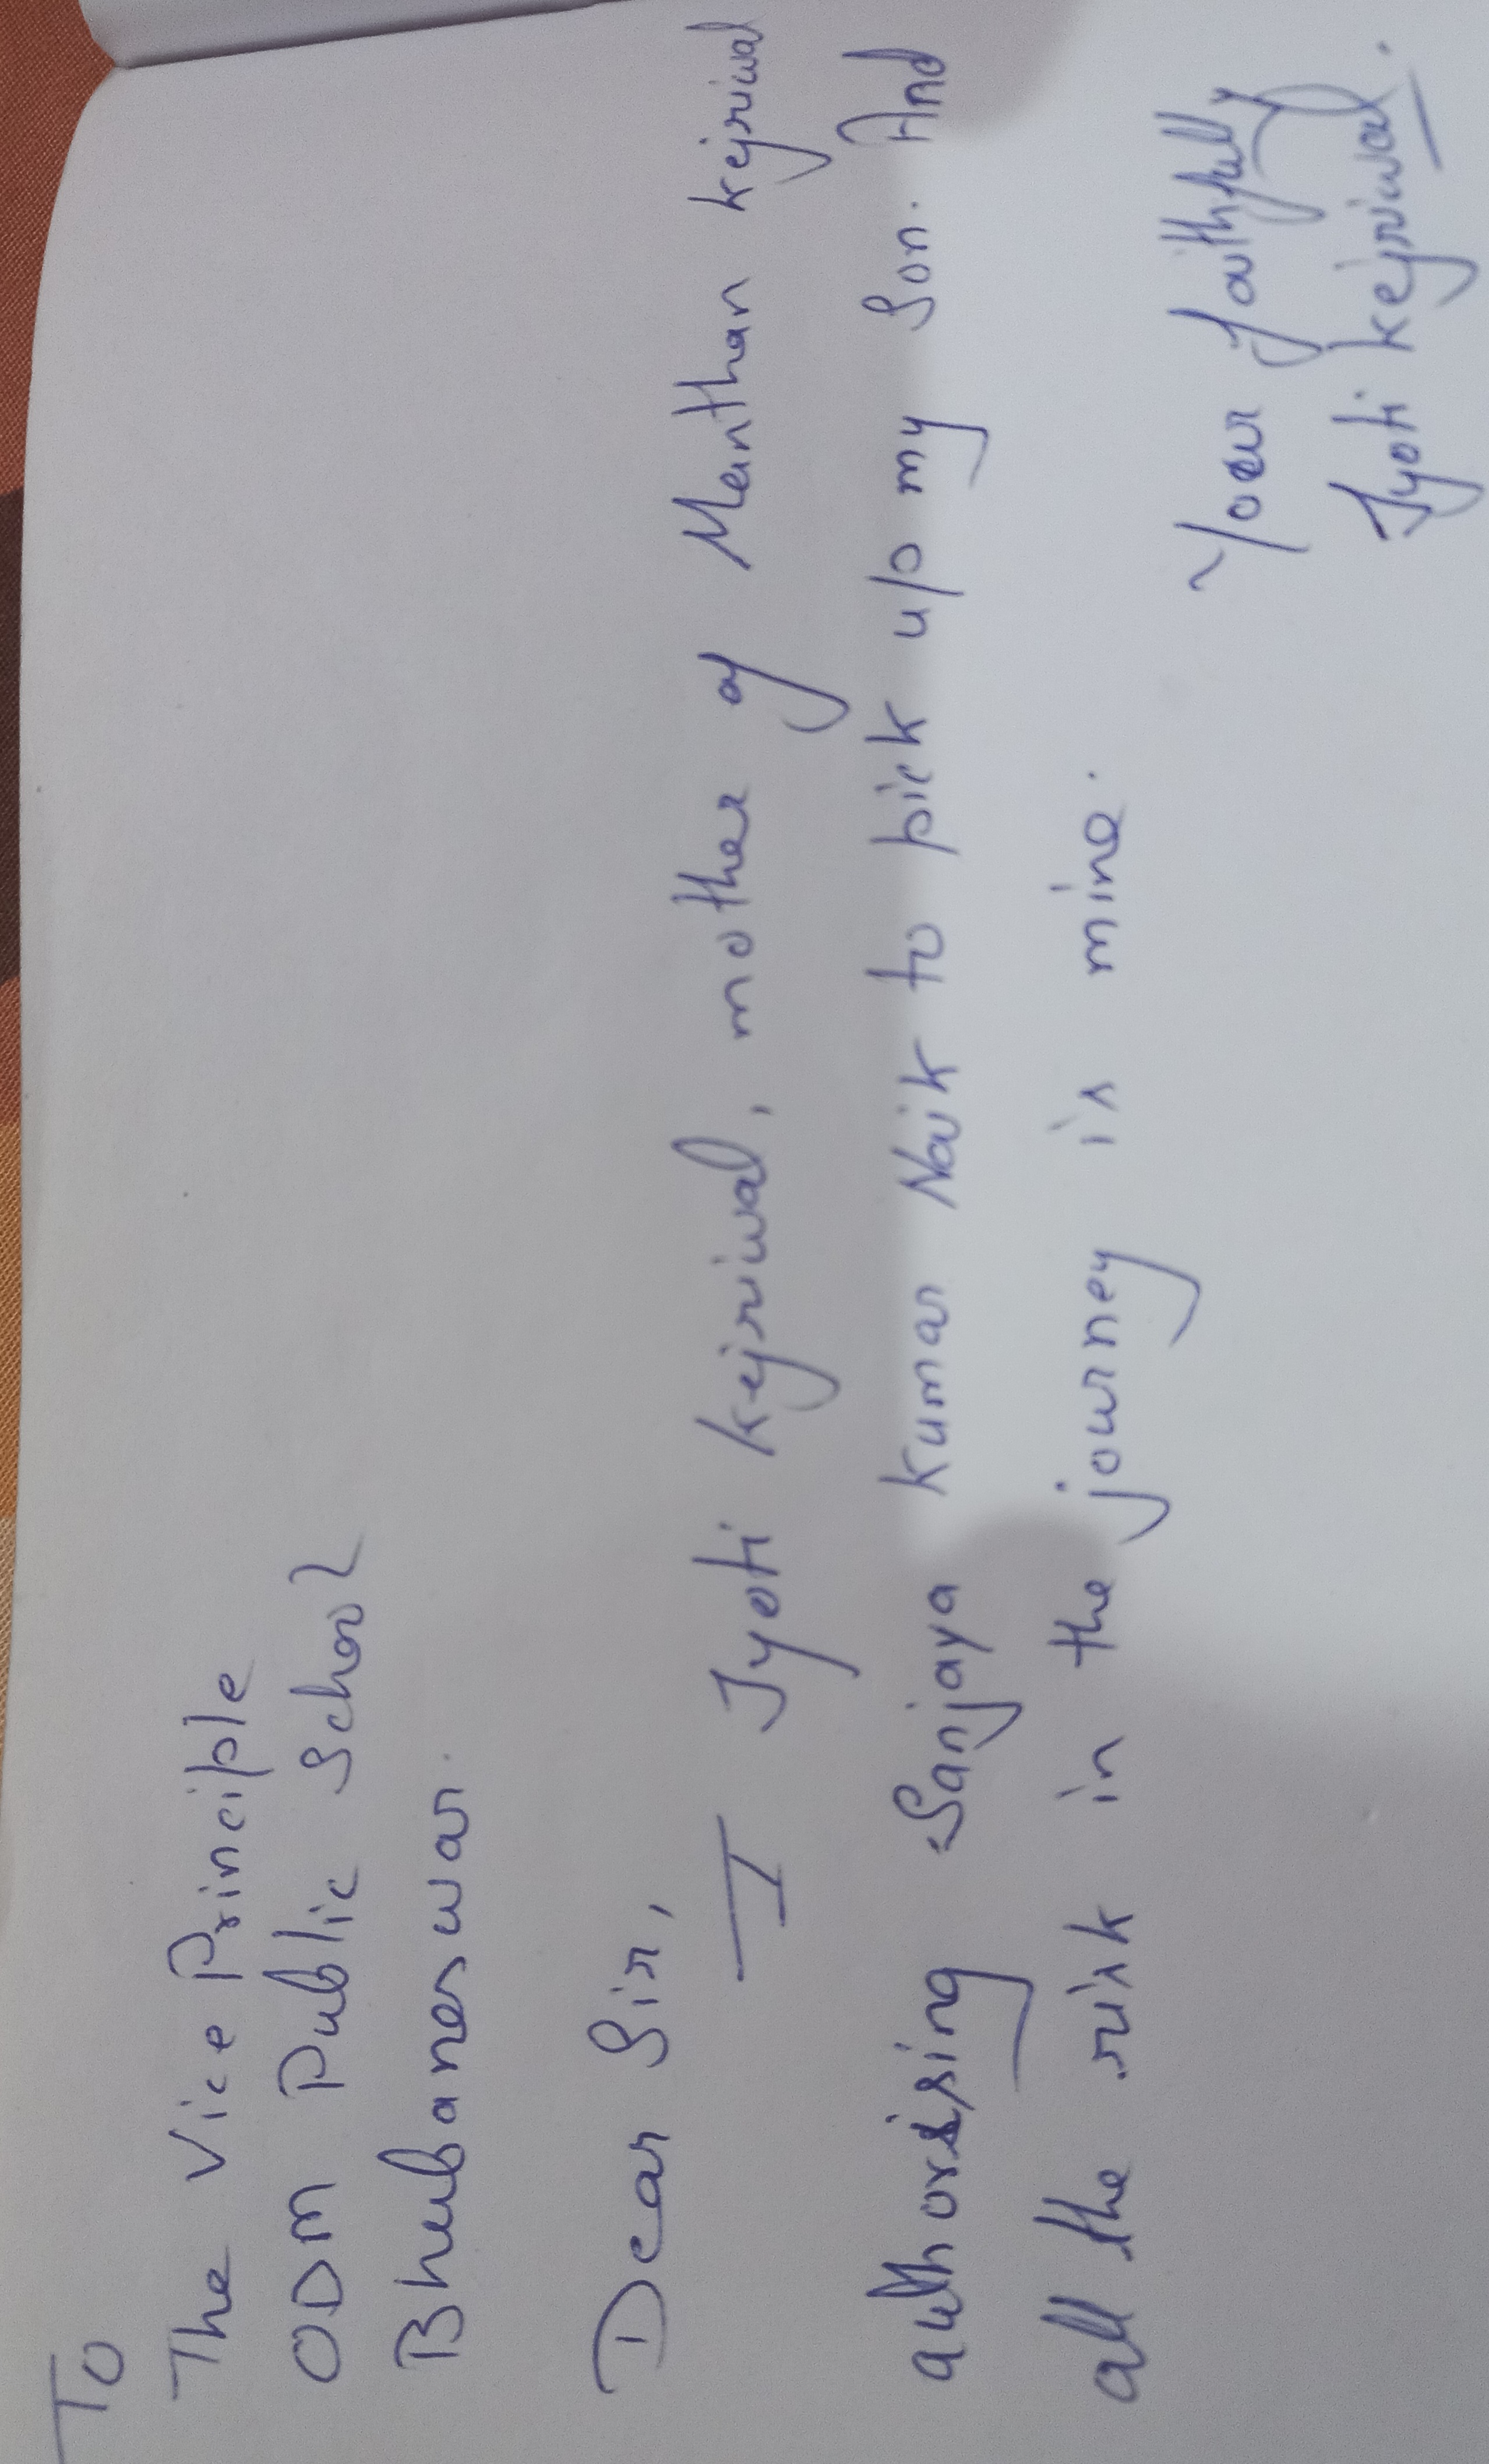 To
The Vice Principle
ODM Public School
Bhubaneswar.
Dear Sir,
I Jyoti kejriwal, mother of Manthan kejriwal
authorising Sanjaya kumar Naik to pick up my son. And
all the risk in the journey is mine.
Your faithfully
Jyoti kejriwal.